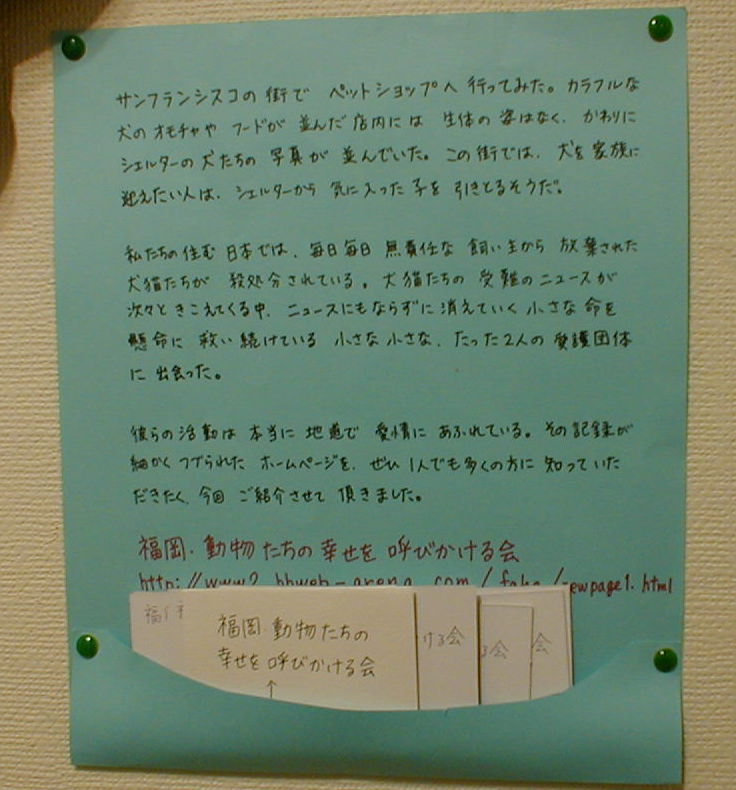 サンフランシスコの街で ペットショップへ行ってみた。カラフルな
犬のオモチャや フードが並んだ店内には 生体の姿はなく、かわりに
シェルターの犬たちの写真が並んでいた。この街では、犬を家族に
迎えたい人は、シェルターから気に入った子を引きとるそうだ。
私たちの住む日本では、毎日毎日 無責任な飼い主から放棄された
犬猫たちが 殺処分されている。犬猫たちの受難のニュースが
次々ときこえてくる中、ニュースにもならずに消えていく小さな命を
懸命に救い続けている 小さな小さな、たった2人の愛護団体
に出会った。
彼らの活動は本当に地道で愛情にあふれている。その記録が
細かくつづられたホームページを、ぜひ1人でも多くの方に知っていた
だきたく、今回ご紹介させて頂きました。
福岡・動物たちの幸せを呼びかける会
http://www2.hbweb-arena.com/ ewpage1.html
福岡・動物たちの
幸せを呼びかける会
↑
ける会
る会
会